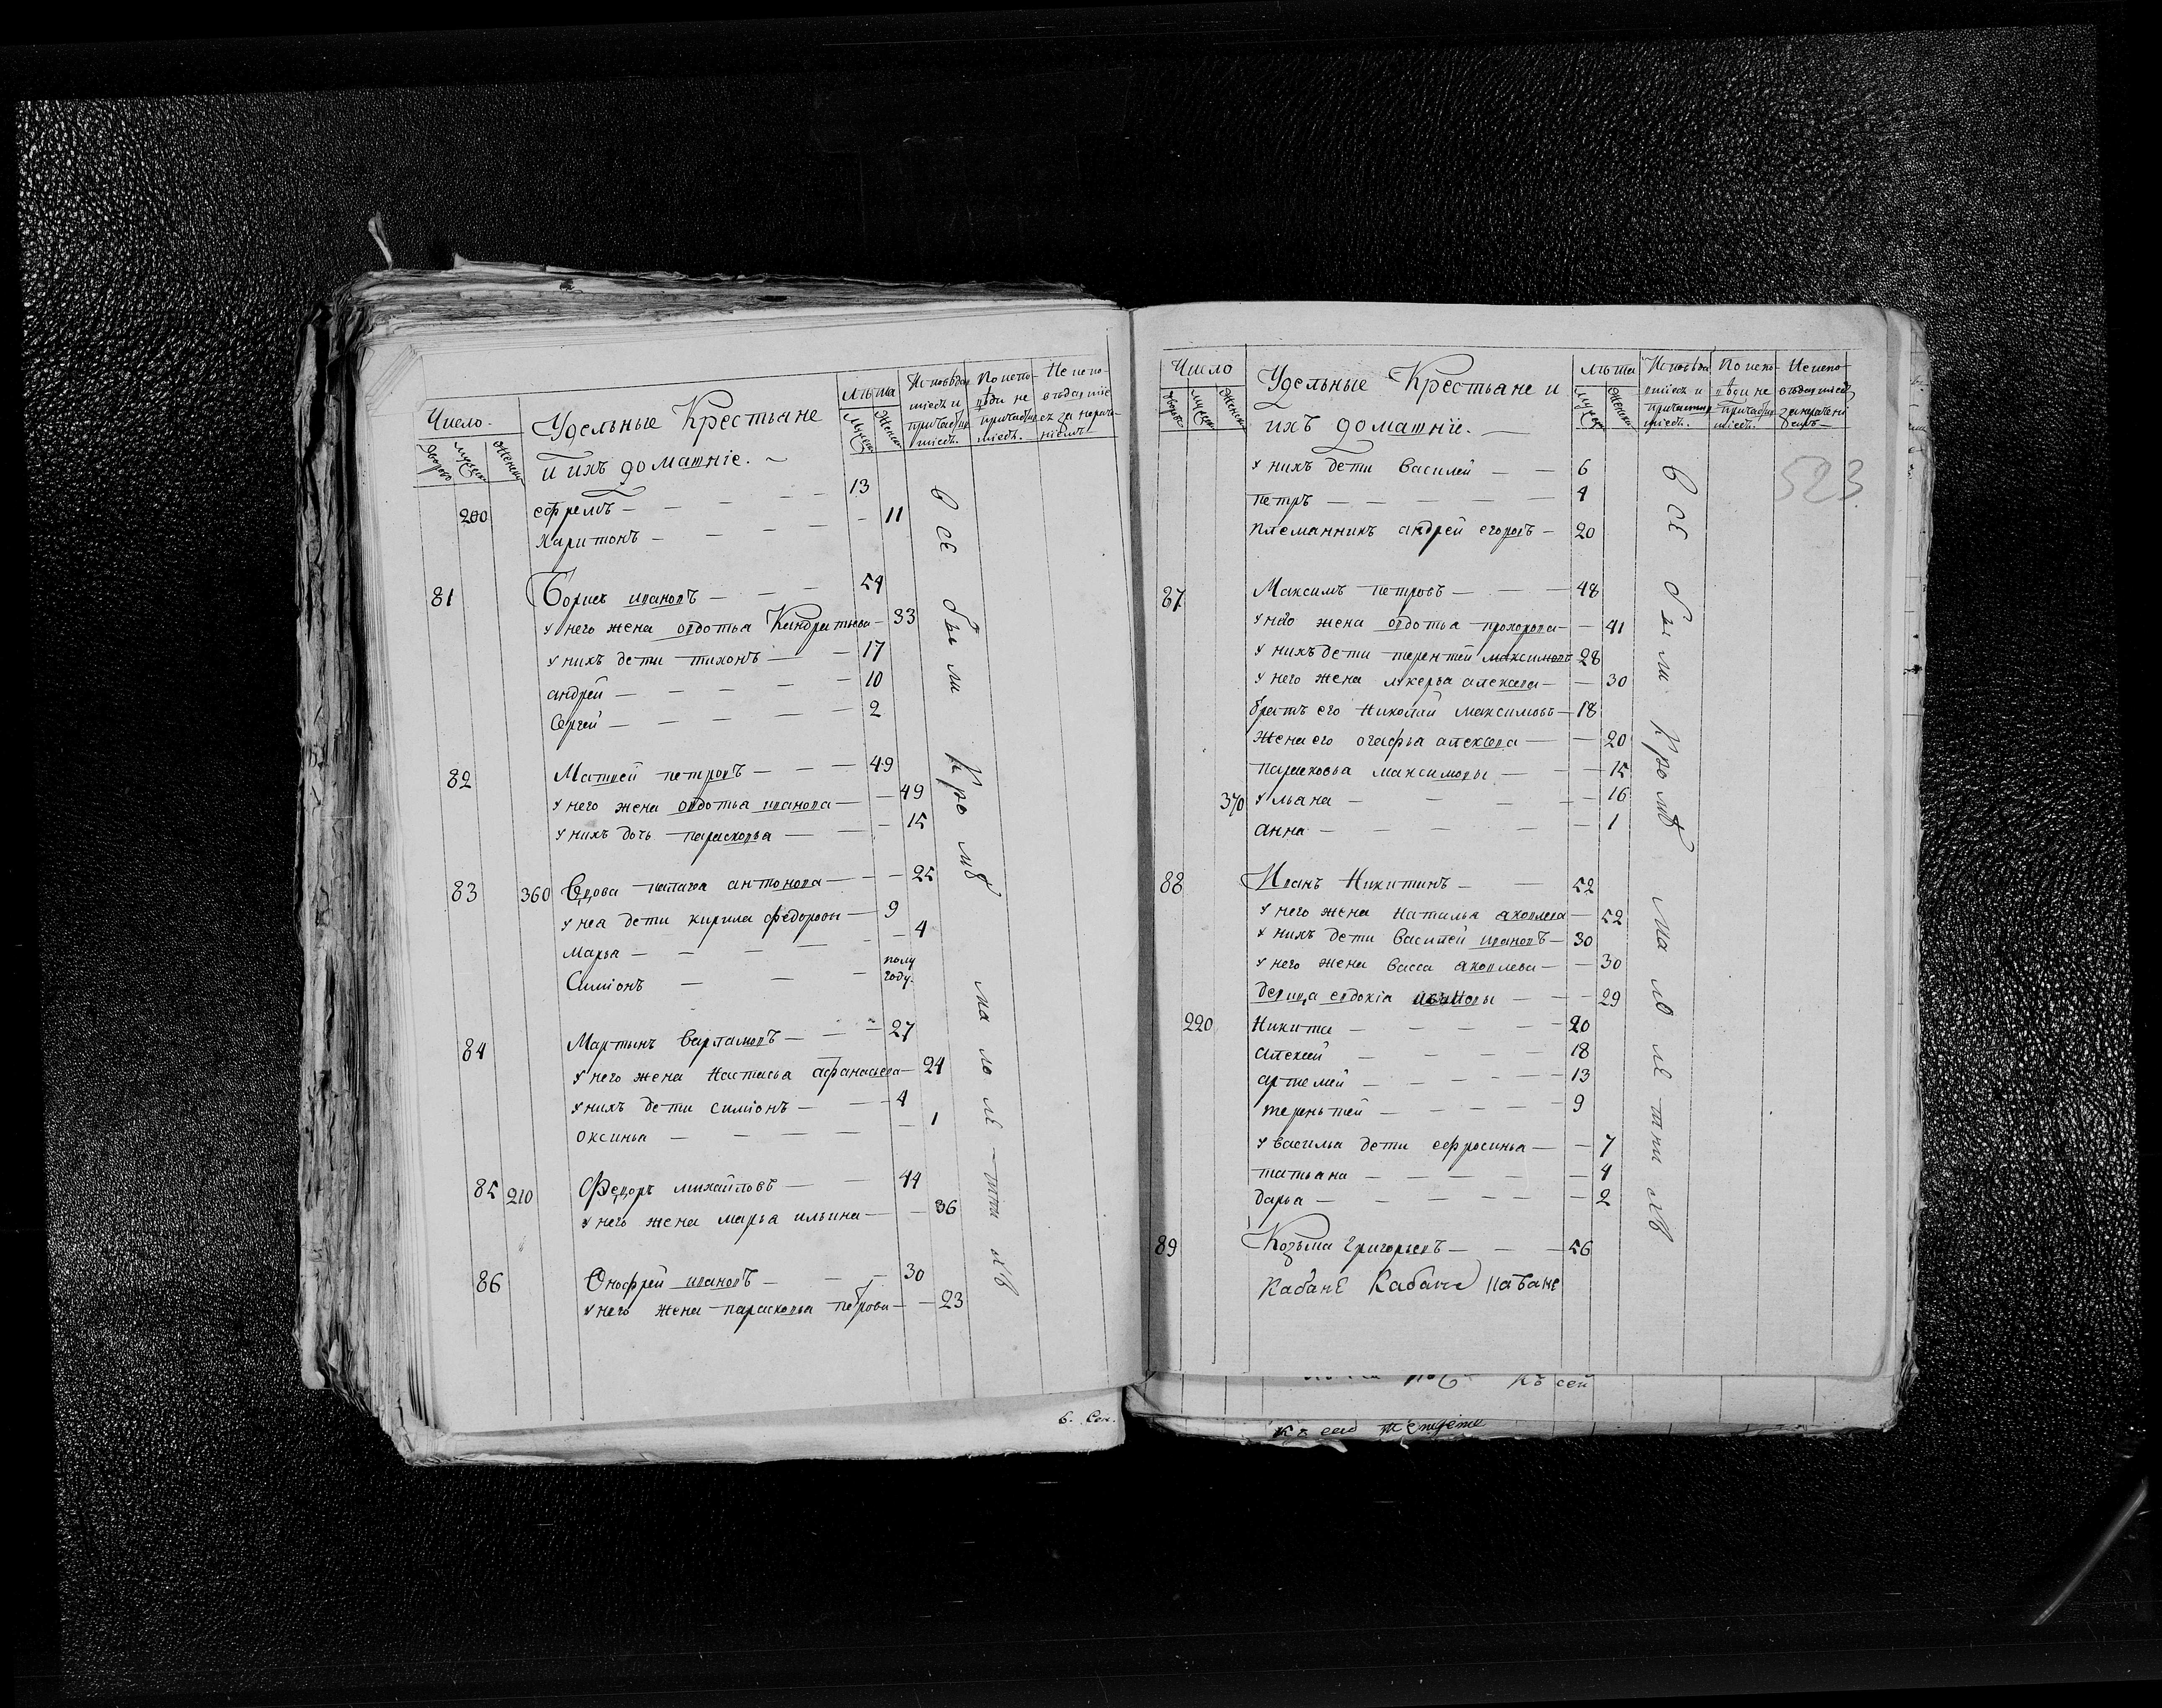 Число
Удельные Крестьяне
и ихъ домашніе.
лѣта
Исповѣдав
шіесь и
причастив
шіесь.
По испо-
вѣди не
причастив
шіесь.
Не испо-
вѣдавшіе
сь за нерач-
ніемъ
дворовъ
мужеск
женск
Мужес
Женс
ефремъ — 13
200
харитонъ — 11
81 Борисъ ивановъ — 54
у него жена овдотья Кандратьева — 33
у нихъ дети тихонъ — 17
андрей — 10
Сергей — 2
82 Матвей петровъ — 49
у него жена овдотья иванова — 49
у нихъ дочь парасковья — 15
83 360 Вдова палагя антонова — 25
у неа дети кирила федоровы — 9
Марья — 4
Симіонъ — полу
году.
84 Мартынъ варламовъ — 27
у него жена Настасья афанасьева — 24
у нихъ дети симіонъ — 4
оксинья — 1
85 210 Федоръ михайловъ — 44
у него жена марья ильина — 36
86 Онофрей ивановъ — 30
у него жена парасковья петрова — 23
все были кромѣ малолѣтнихъ
6. Сен.
Число
Удельные Крестьяне и
ихъ домашніе.
лѣта
Исповѣдав
шіесь и
причастив
шіесь.
По испо-
вѣди не
причастив
шіесь.
Неиспо-
вѣдавшіесь
за нерачені
емъ
дворовъ
мужеск
женск
Мужес
Женск
523
у нихъ дети Василей — 6
петръ — 4
племанникъ андрей егоровъ — 20
87 Максимъ петровъ — 48
у него жена овдотья прохорова — 41
у нихъ дети терентей максимовъ 28
у него жена лукерья алексева — 30
братъ его Николай максимовъ — 18
Жена его огафья алексева — 20
парасковья максимовы — 15
370 ульана — 16
анна — 1
88 Иванъ Никитинъ — 52
у него жена Наталья аковлева — 52
у нихъ дети Василей ивановъ — 30
у него жена васса аковлева — 30
девица евдокіа ивановы — 29
220 Никита — 20
алексей — 18
артемей — 13
терентей — 9
у василья дети ефросинья — 7
татьана — 4
дарья — 2
89 Козьма григорьевъ — 56
Кабане Кабане кабане
все были кромѣ малолѣтнихъ
къ сей